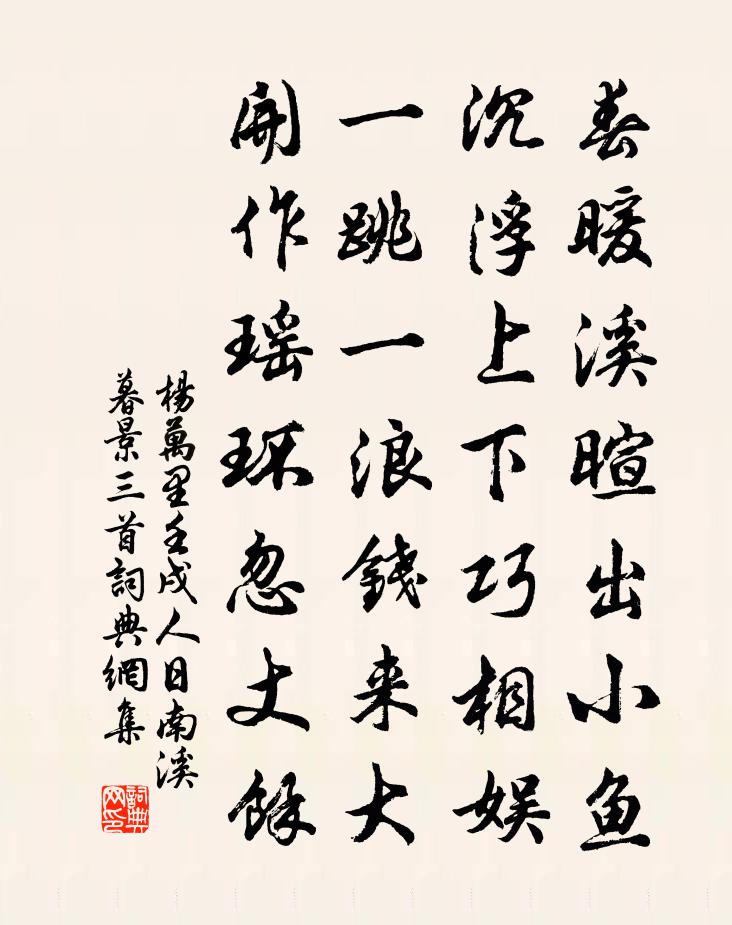 春暖溪暄出小鱼
沉浮上下巧相娱
一跳一浪錢来大
開作瑶环忽丈餘
楊萬里壬戌人日南溪
暮景三首詞典網集
詞典
网印